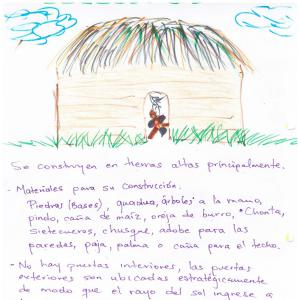 Se construyen en tierras altas principalmente.
- Materiales para su construcción:
Piedras (Bases), guadua, árboles a la mano,
pindo, caña de maíz, oreja de burro, *Chonta,
sietecueros, chusque, adobe para las
paredes, paja, palma o caña para el techo.
- No hay puertas interiores, las puertas
exteriores son ubicadas estratégicamente
de modo que el rayo del sol ingrese a